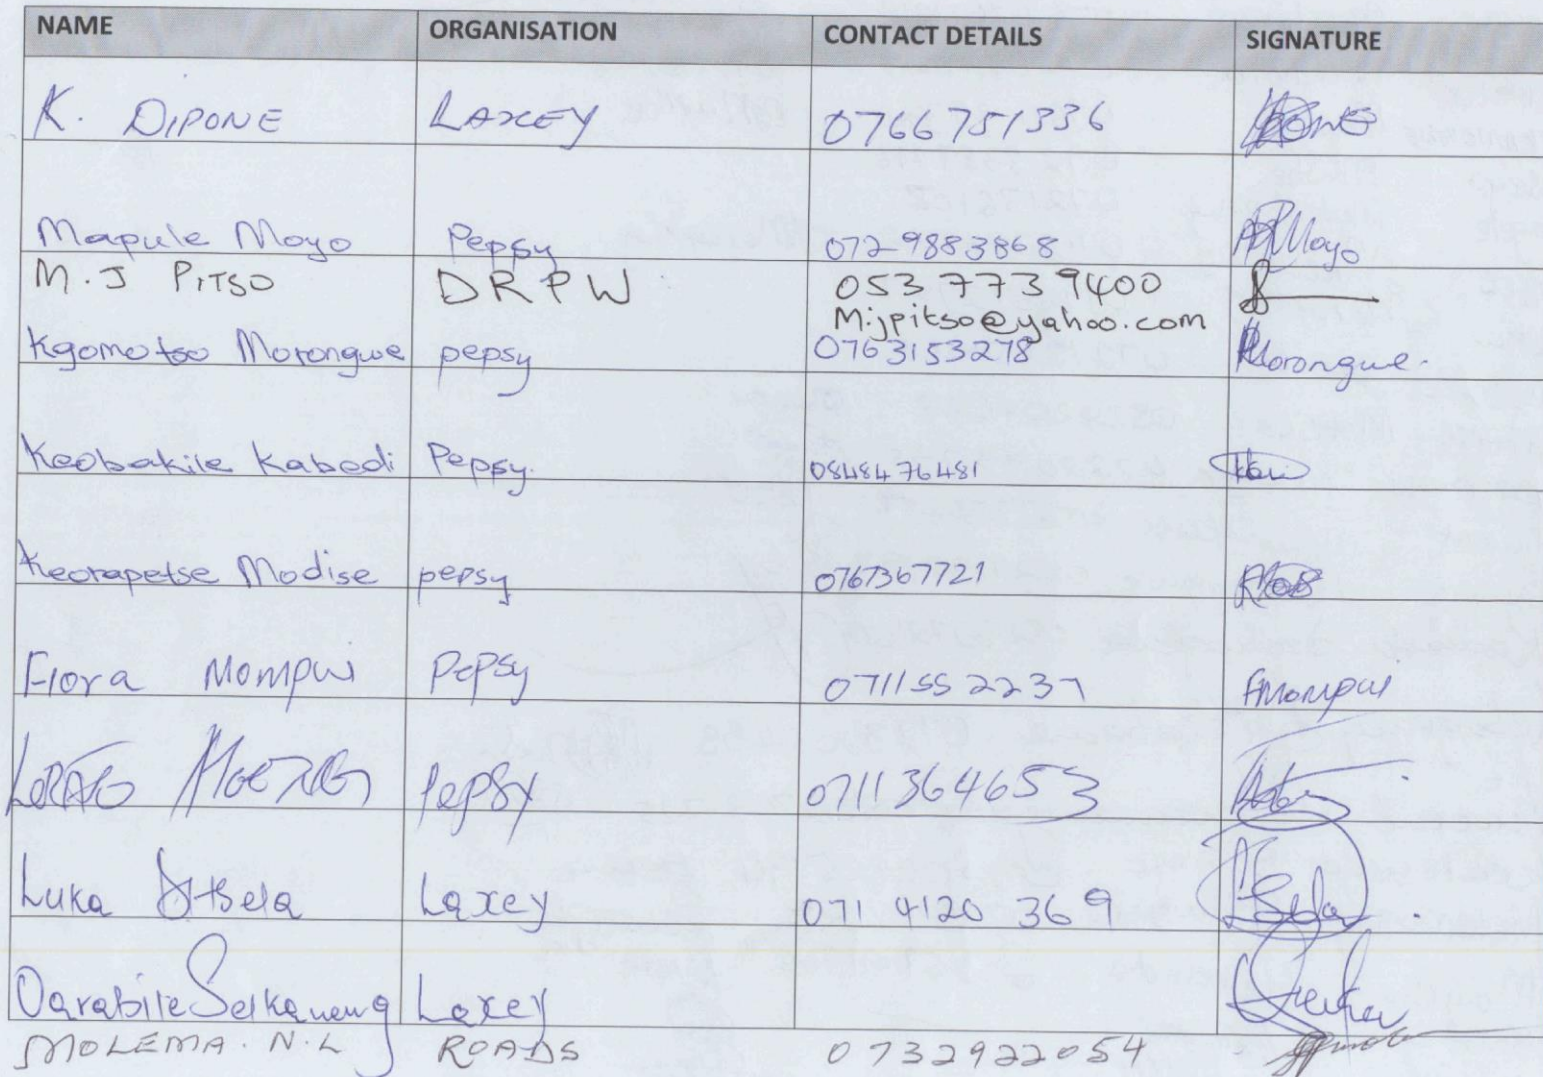 NAME ORGANISATION CONTACT DETAILS SIGNATURE
K. DIPONE LAXEY 0766751336
Mapule Moyo Pepsy 072-9883868 Moyo
M.J PITSO DRPW 053 773 9400
M.jpitso@yahoo.com
Kgomotso Morongwe pepsy 0763153278 Morongwe.
Keobakile Kabedi Pepsy. 0848476481
Keorapetse Modise pepsy 0767367721
Flora Mompwi Pepsy 0711552237 FMompwi
LORATO Pepsy 0711364653
Luka Ditsela Laxey 071 4120 369
Oarabile Seikaneng Laxey
MOLEMA. N.L ROADS 0732922054